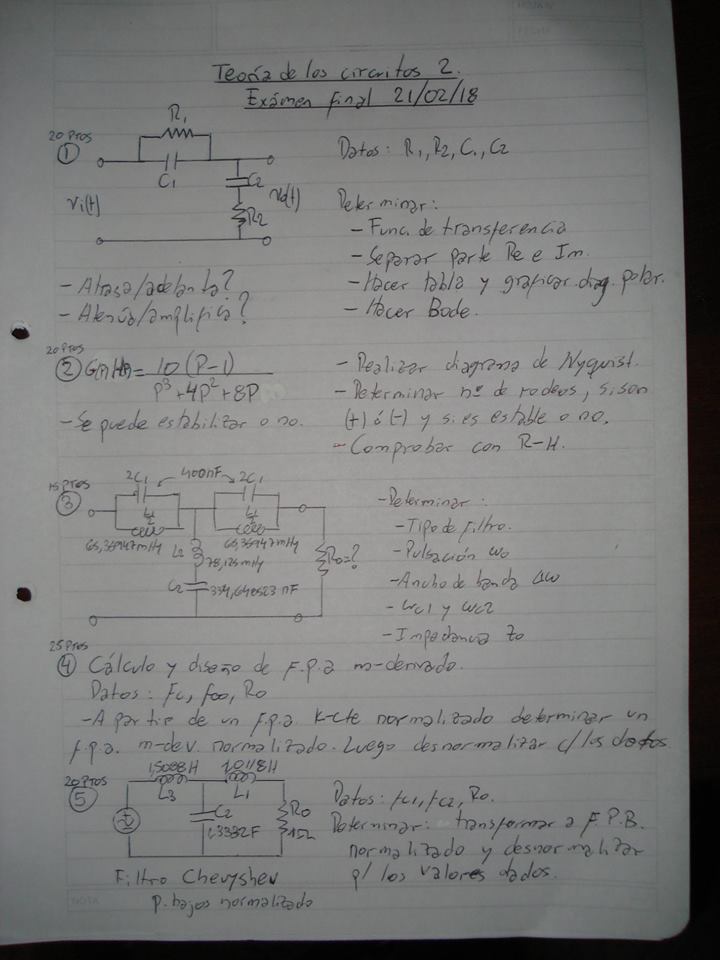 Teoría de los circuitos 2.
Exámen final 21/02/18
20 Ptos
① R1 C1 C2 R2 Vi(t) Vo(t)
Datos: R1, R2, C1, C2
Determinar:
- Func. de transferencia
- Separar parte Re e Im.
- Hacer tabla y graficar diag. polar.
- Hacer Bode.
- Atrasa/adelanta?
- Atenúa/amplifica?
20 Ptos
② G(P)H(P) = 10 (P-1) / P³ + 4P² + 8P
- Se puede estabilizar o no.
- Realizar diagrama de Nyquist.
- Determinar nº de rodeos, si son
(+) ó (-) y si es estable o no.
- Comprobar con R-H.
15 Ptos
③ 2C1 400nF 2C1
L2 78,125mHy
C2 334,640523 nF
Ro=?
- Determinar:
- Tipo de filtro.
- Pulsación ωo
- Ancho de banda Δω
- ωc1 y ωc2
- Impedancia Zo
25 Ptos
④ Cálculo y diseño de F.p.a m-derivado.
Datos: Fc, f∞, Ro
- A partir de un f.p.a K-cte normalizado determinar un
f.p.a. m-dev. normalizado. Luego desnormalizar c/ los datos
20 Ptos
⑤ L3 L1
C2 1,3332F
Ro 1Ω
Filtro Chevyshev
P. bajos normalizado
Datos: fc1, fc2, Ro.
Determinar: transformar a F.P.B.
normalizado y desnormalizar
p/ los valores dados.